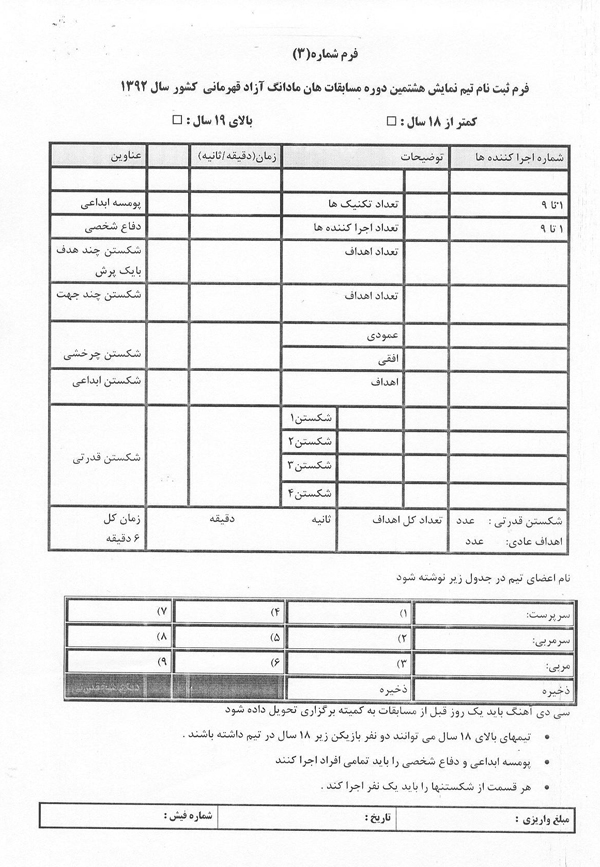 فرم شماره(۳)
فرم ثبت نام تیم نمایش هشتمین دوره مسابقات هان مادانگ آزاد قهرمانی کشور سال ۱۳۹۲
کمتر از ۱۸ سال : □ بالای ۱۹ سال : □
شماره اجرا کننده ها توضیحات زمان(دقیقه/ثانیه) عناوین
۱ تا ۹ تعداد تکنیک ها پومسه ابداعی
۱ تا ۹ تعداد اجرا کننده ها دفاع شخصی
تعداد اهداف شکستن چند هدف
بایک پرش
تعداد اهداف شکستن چند جهت
عمودی
افقی شکستن چرخشی
اهداف شکستن ابداعی
شکستن۱
شکستن۲
شکستن قدرتی
شکستن۳
شکستن۴
شکستن قدرتی : عدد تعداد کل اهداف ثانیه دقیقه زمان کل
اهداف عادی: عدد ۶ دقیقه
نام اعضای تیم در جدول زیر نوشته شود
سرپرست: ۱) ۴) ۷)
سرمربی: ۲) ۵) ۸)
مربی: ۳) ۶) ۹)
ذخیره ذخیره
سی دی آهنگ باید یک روز قبل از مسابقات به کمیته برگزاری تحویل داده شود
• تیمهای بالای ۱۸ سال می توانند دو نفر بازیکن زیر ۱۸ سال در تیم داشته باشند .
• پومسه ابداعی و دفاع شخصی را باید تمامی افراد اجرا کنند
• هر قسمت از شکستنها را باید یک نفر اجرا کند .
مبلغ واریزی : تاریخ : شماره فیش :